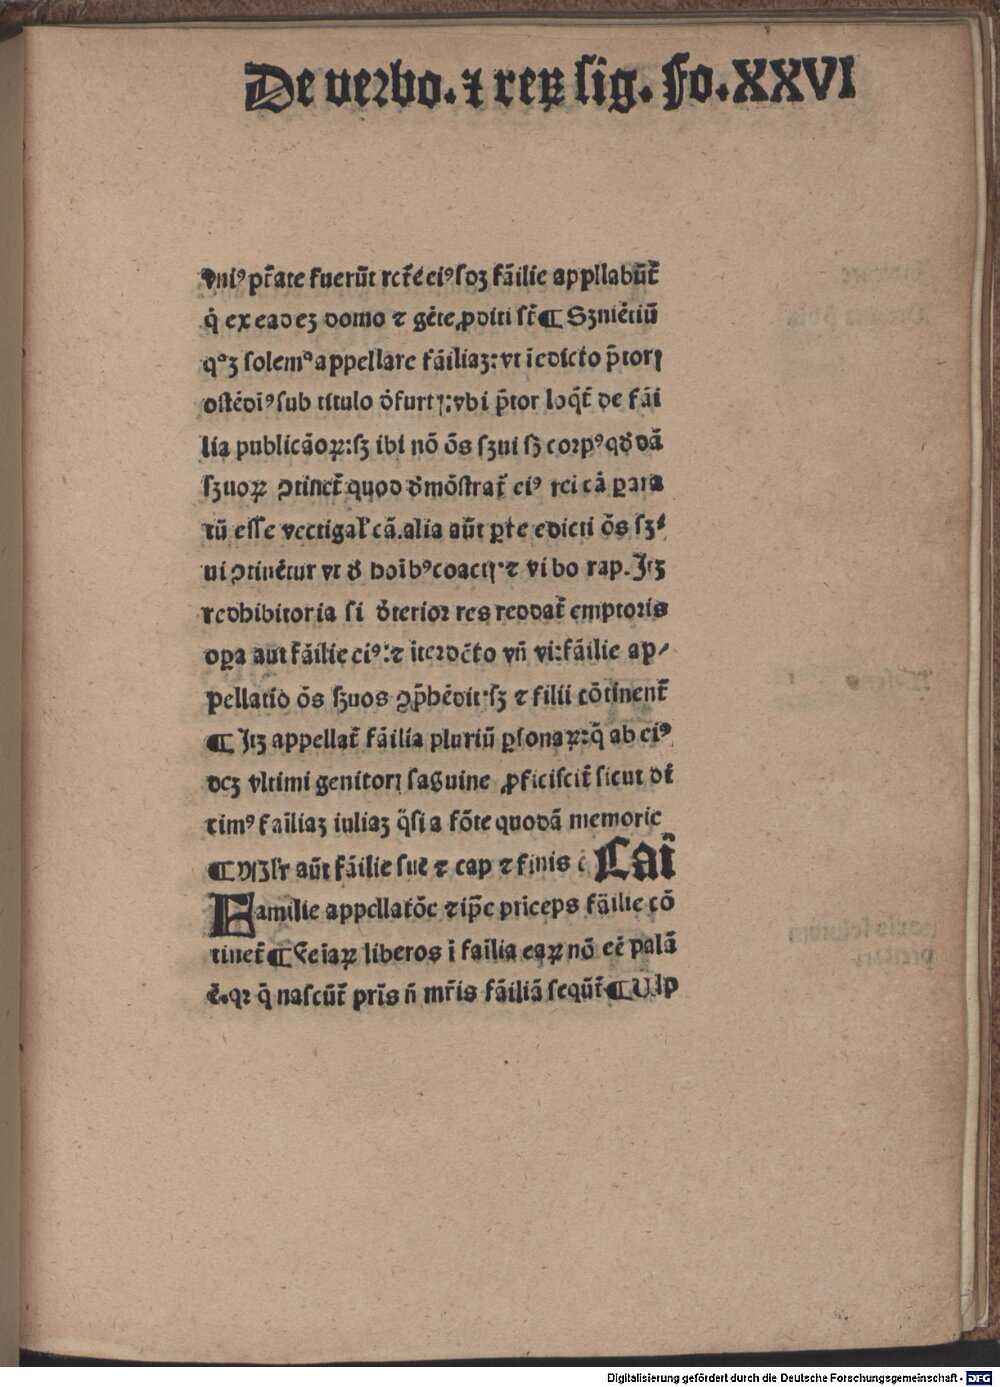 De verbo. ⁊ reꝝ sig. Fo. XXVI
vniꝰ pr̄ate fuerūt rct̄e eiꝰ soꝫ fāilie appllabūt̄
q̇ ex eadeꝫ domo ⁊ gēte ꝓditi st̄ ¶ Sꝫuiētiū
qͦꝫ solemꝰ appellare fāiliaꝫ: vt ī edicto p̄torꝭ
ostēdiꝰ sub titulo d̓ furtꝭ: vbi p̄tor loq̄t̄ de fāi
lia publicāoꝝ: sꝫ ibi nō ōs sꝫui sꝫ corpꝰ qd̓dā
sꝫuoꝝ ꝯtinet̄ quod d̓mōstrat̄ eiꝰ rei cā ꝑara
tū esse vectigal' cā. alia aūt ꝑte edicti ōs sꝫ
ui ꝯtinētur vt d̓ hoībꝰ coactꝭ ⁊ vi bo rap. Itꝫ
redhibitoria si d̓terior res reddat̄ emptoris
oꝑa aut fāilie eiꝰ: ⁊ iterdc̄to vn̄ vi: fāilie ap⸗
pellatio ōs sꝫuos ꝯp̄hēdit. sꝫ ⁊ filii cōtinent̄
¶ Itꝫ appellat̄ fāilia pluriū ꝑsonaꝝ: q̄ ab eiꝰ
dēꝫ vltimi genitorꝭ sāguine ꝓficiscit̄ sicut di
cimꝰ failiaꝫ iuliaꝫ q̄si a fōte quodā memorie
¶ Mlr̄ aūt fāilie sue ⁊ cap ⁊ finis ē Caī
Familie appellatōe ⁊ ip̄e priceps fāilie cō
tinet̄ ¶ Feiaꝝ liberos ī failia eaꝝ nō eē palā
ē. qꝛ q̇ nascūt̄ pr̄is n̄ mr̄is fāiliā sequūt̄ ¶ Ulp
Digitalisierung gefördert durch die Deutsche Forschungsgemeinschaft - DFG